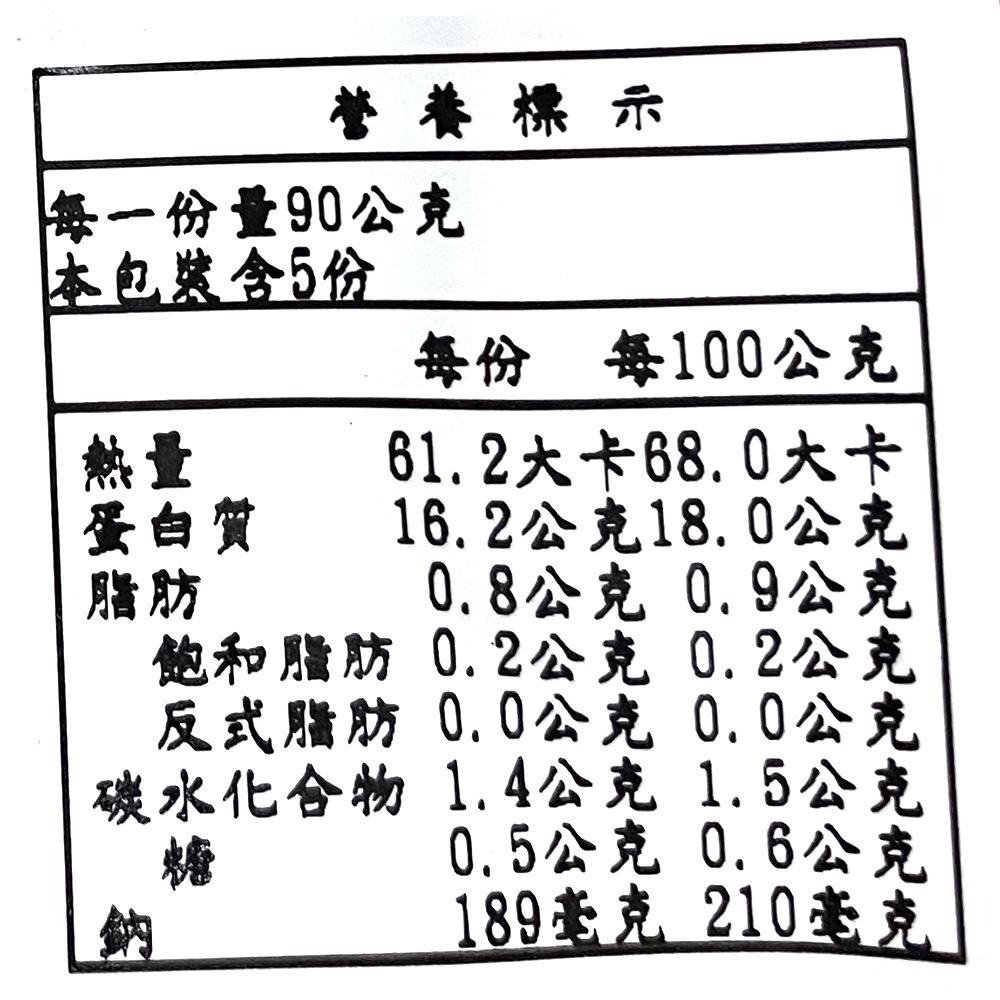 營養標示
每一份量90公克
本包裝含5份
每份 每100公克
熱量 61.2大卡 68.0大卡
蛋白質 16.2公克 18.0公克
脂肪 0.8公克 0.9公克
飽和脂肪 0.2公克 0.2公克
反式脂肪 0.0公克 0.0公克
碳水化合物 1.4公克 1.5公克
糖 0.5公克 0.6公克
鈉 189毫克 210毫克